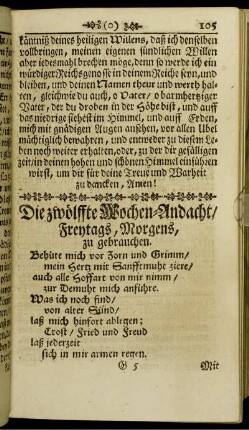 (o) 105
käntniß deines heiligen Willens, daß ich denselben
vollbringen, meinen eigenen sündlichen Willen
aber jedesmahl brechen möge, denn so werde ich ein
würdiger Reichsgenosse in deinem Reiche seyn, und
bleiben, und deinen Namen theur und werth hal-
ten, gleichwie du auch, o Vater, o barmhertziger
Vater, der du droben in der Höhe bist, und auff
das niedrige siehest im Himmel, und auff Erden,
mich mit gnädigen Augen ansehen, vor allen Ubel
mächtiglich bewahren, und entweder zu diesem Le-
ben noch weiter erhalten, oder, zu der dir gefälligen
zeit, in deinen hohen und schönen Himmel einführen
wirst, um dir für deine Treue und Warheit
zu dancken, Amen!
Die zwölffte Wochen-Andacht/
Freytags, Morgens,
zu gebrauchen.
Behüte mich vor Zorn und Grimm/
mein Hertz mit Sanfftmuht ziere/
auch alle Hoffart von mir nimm/
zur Demuht mich anführe.
Was ich noch find/
von alter Sünd/
laß mich hinfort ablegen;
Trost/ Fried und Freud
laß jederzeit
sich in mir armen regen.
G 5 Mit